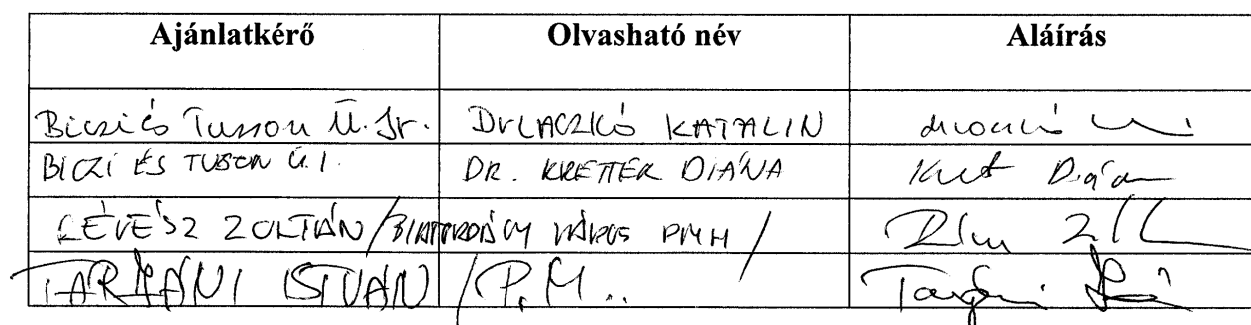 Ajánlatkérő Olvasható név Aláírás
Biczi és Tuson Ü. Ir. Dr LACZKÓ KATALIN
BICZI ÉS TUSON Ü.I. DR. KRETTER DIÁNA
RÉVÉSZ ZOLTÁN / BIATORBÁGY VÁROS PMH /
TARJÁNI ISTVÁN / P.M..